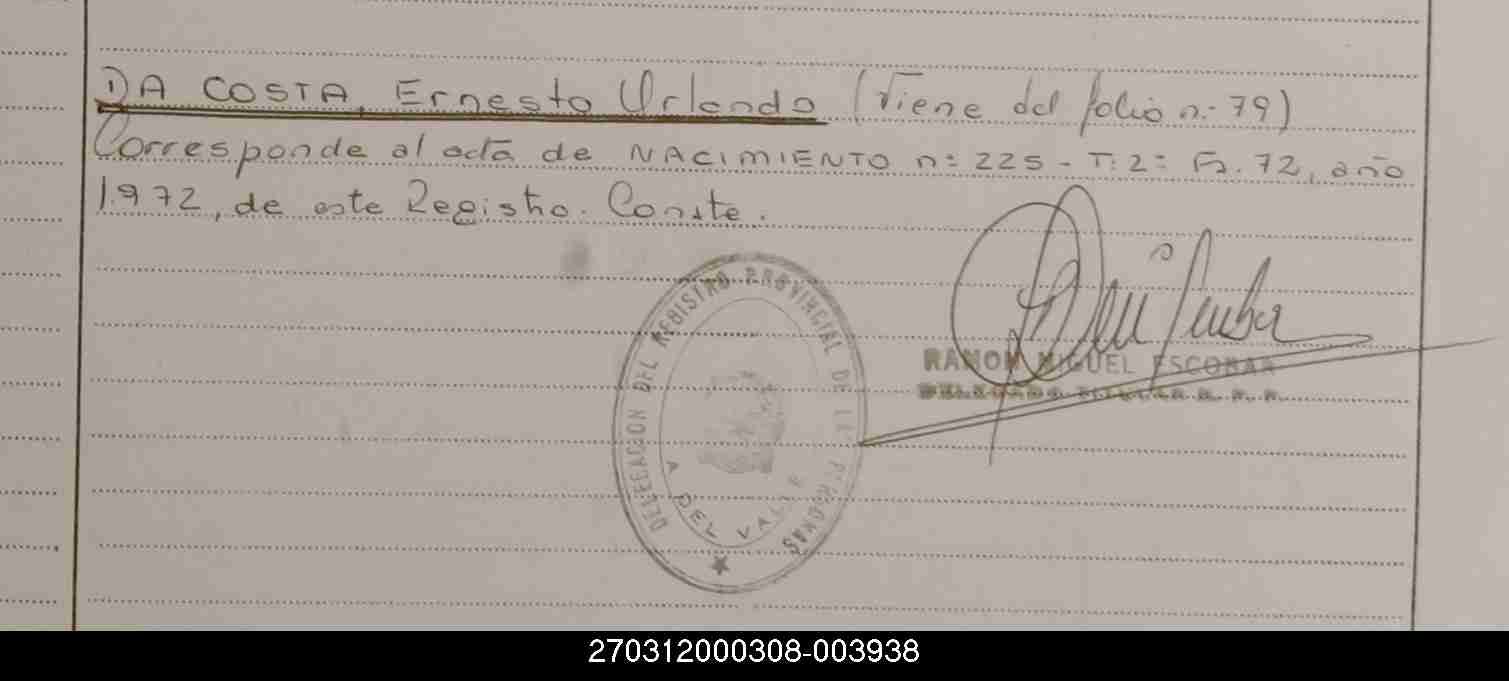 DA COSTA, Ernesto Orlando (Viene del folio n: 79)
Corresponde al acta de NACIMIENTO n: 225 - T: 2: Fo. 72, año
1.972, de este Registro. Conste.
DELEGACION DEL REGISTRO PROVINCIAL DE LAS PERSONAS
A DEL VALLE
RAMON MIGUEL ESCOBAR
DELEGADO TITULAR R. P. P.
270312000308-003938